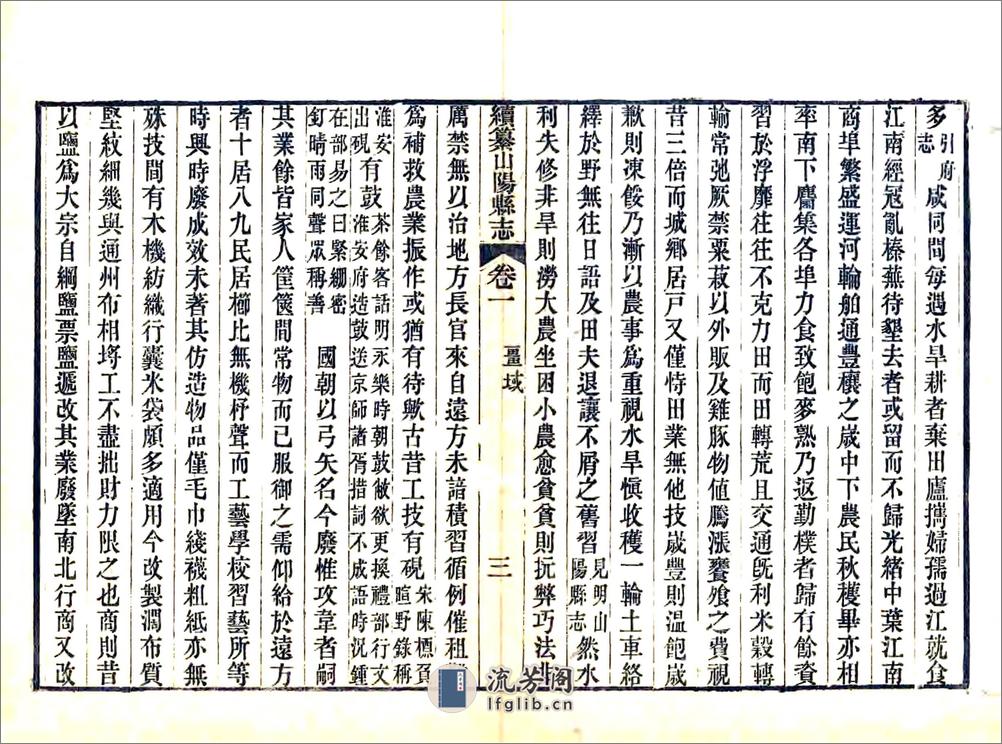 多引府志咸同間每遇水旱耕者棄田廬攜婦孺過江就食
江南經寇亂榛蕪待墾去者或留而不歸光緒中葉江南
商埠繁盛運河輪舶通豐穰之歲中下農民秋穫畢亦相
率南下麕集各埠力食致飽麥熟乃返勤樸者歸有餘資
習於浮靡往往不克力田而田轉荒且交通旣利米穀轉
輸常弛厥禁粟菽以外販及雞豚物値騰漲饔飧之費視
昔三倍而城鄉居戸又僅恃田業無他技歲豐則温飽歲
歉則凍餒乃漸以農事爲重視水旱愼收穫一輪土車絡
繹於野無往日語及田夫退讓不屑之舊習見明山陽縣志然水
利失修非旱則澇大農坐困小農愈貧貧則抏弊巧法非
續纂山陽縣志 卷一 疆域 三
厲禁無以治地方長官來自遠方未諳積習循例催租
爲補救農業振作或猶有待歟古昔工技有硯宋陳槱負暄野錄稱
淮安出硯有鼓茶餘客話明永樂時朝鼓敝欲更換禮部行文淮安府造鼓送京師諸胥措詞不成語時況鍾
在部易之曰緊綳密釘晴雨同聲衆稱善 國朝以弓矢名今廢惟攻韋者嗣
其業餘皆家人筐篋間常物而已服御之需仰給於遠方
者十居八九民居櫛比無機杼聲而工藝學校習藝所等
時興時廢成效未著其仿造物品僅毛巾綫襪粗紙亦無
殊技間有木機紡織行囊米袋頗多適用今改製濶布質
堅紋細幾與通州布相埒工不盡拙財力限之也商則昔
以鹽爲大宗自綱鹽票鹽遞改其業廢墜南北行商又改
流芳阁
lfglib.cn